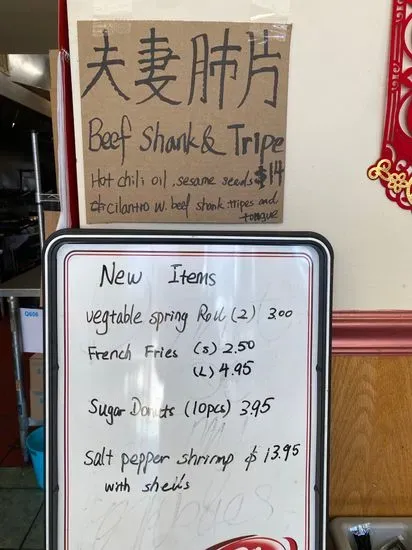 夫妻肺片
Beef Shank & Tripe
Hot chili oil, sesame seeds $14
Cilantro w. beef shank tripes and
tongue
New Items
vegtable spring Roll (2) 3.00
French Fries (s) 2.50
(L) 4.95
Sugar Donuts (10pcs) 3.95
Salt pepper shrimp $13.95
with shells